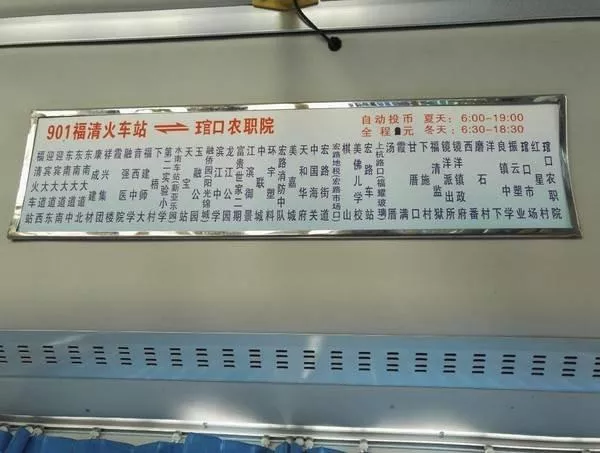 901福清火车站 琯口农职院
自动投币 夏天: 6:00-19:00
全程 元 冬天: 6:30-18:30
福清火车站
迎宾大道西
迎宾大道
东南大道中
东南大道北
康成建材
祥兴集团
霞楼
融强医院
音西中学
福建师大
下梧村
第二实验小学
水南车站(新亚乐园)
天宝站
天融公园
融侨园(阳光锦城)
滨江中学
龙江公园
富贵世家二期
江滨御景
中联城
环宇塑料
宏路消防中队
美嘉城
天和华府
中国海关
宏路街道
宏路地税宏路市场口
棋山
美佛儿学校
宏路车站
上杭路口(福耀玻璃)
汤厝
霞厝
甘厝口
下施村
福清监狱
镜洋派出所
镇洋镇政府
西番
磨石村
洋厝下
良镇中学
振云塑业
琯口市场
红星村
琯口农职院